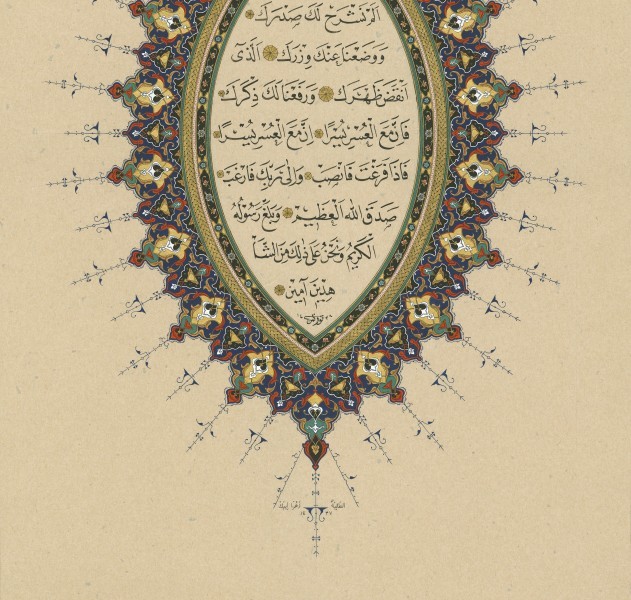 الم نشرح لك صدرك
ووضعنا عنك وزرك الذى
انقض ظهرك ورفعنا لك ذكرك
فان مع العسر يسرا ان مع العسر يسرا
فاذا فرغت فانصب والى ربك فارغب
صدق الله العظيم وبلغ رسوله
الكريم ونحن على ذلك من الشا
هدين آمين
الطالبة زهرا